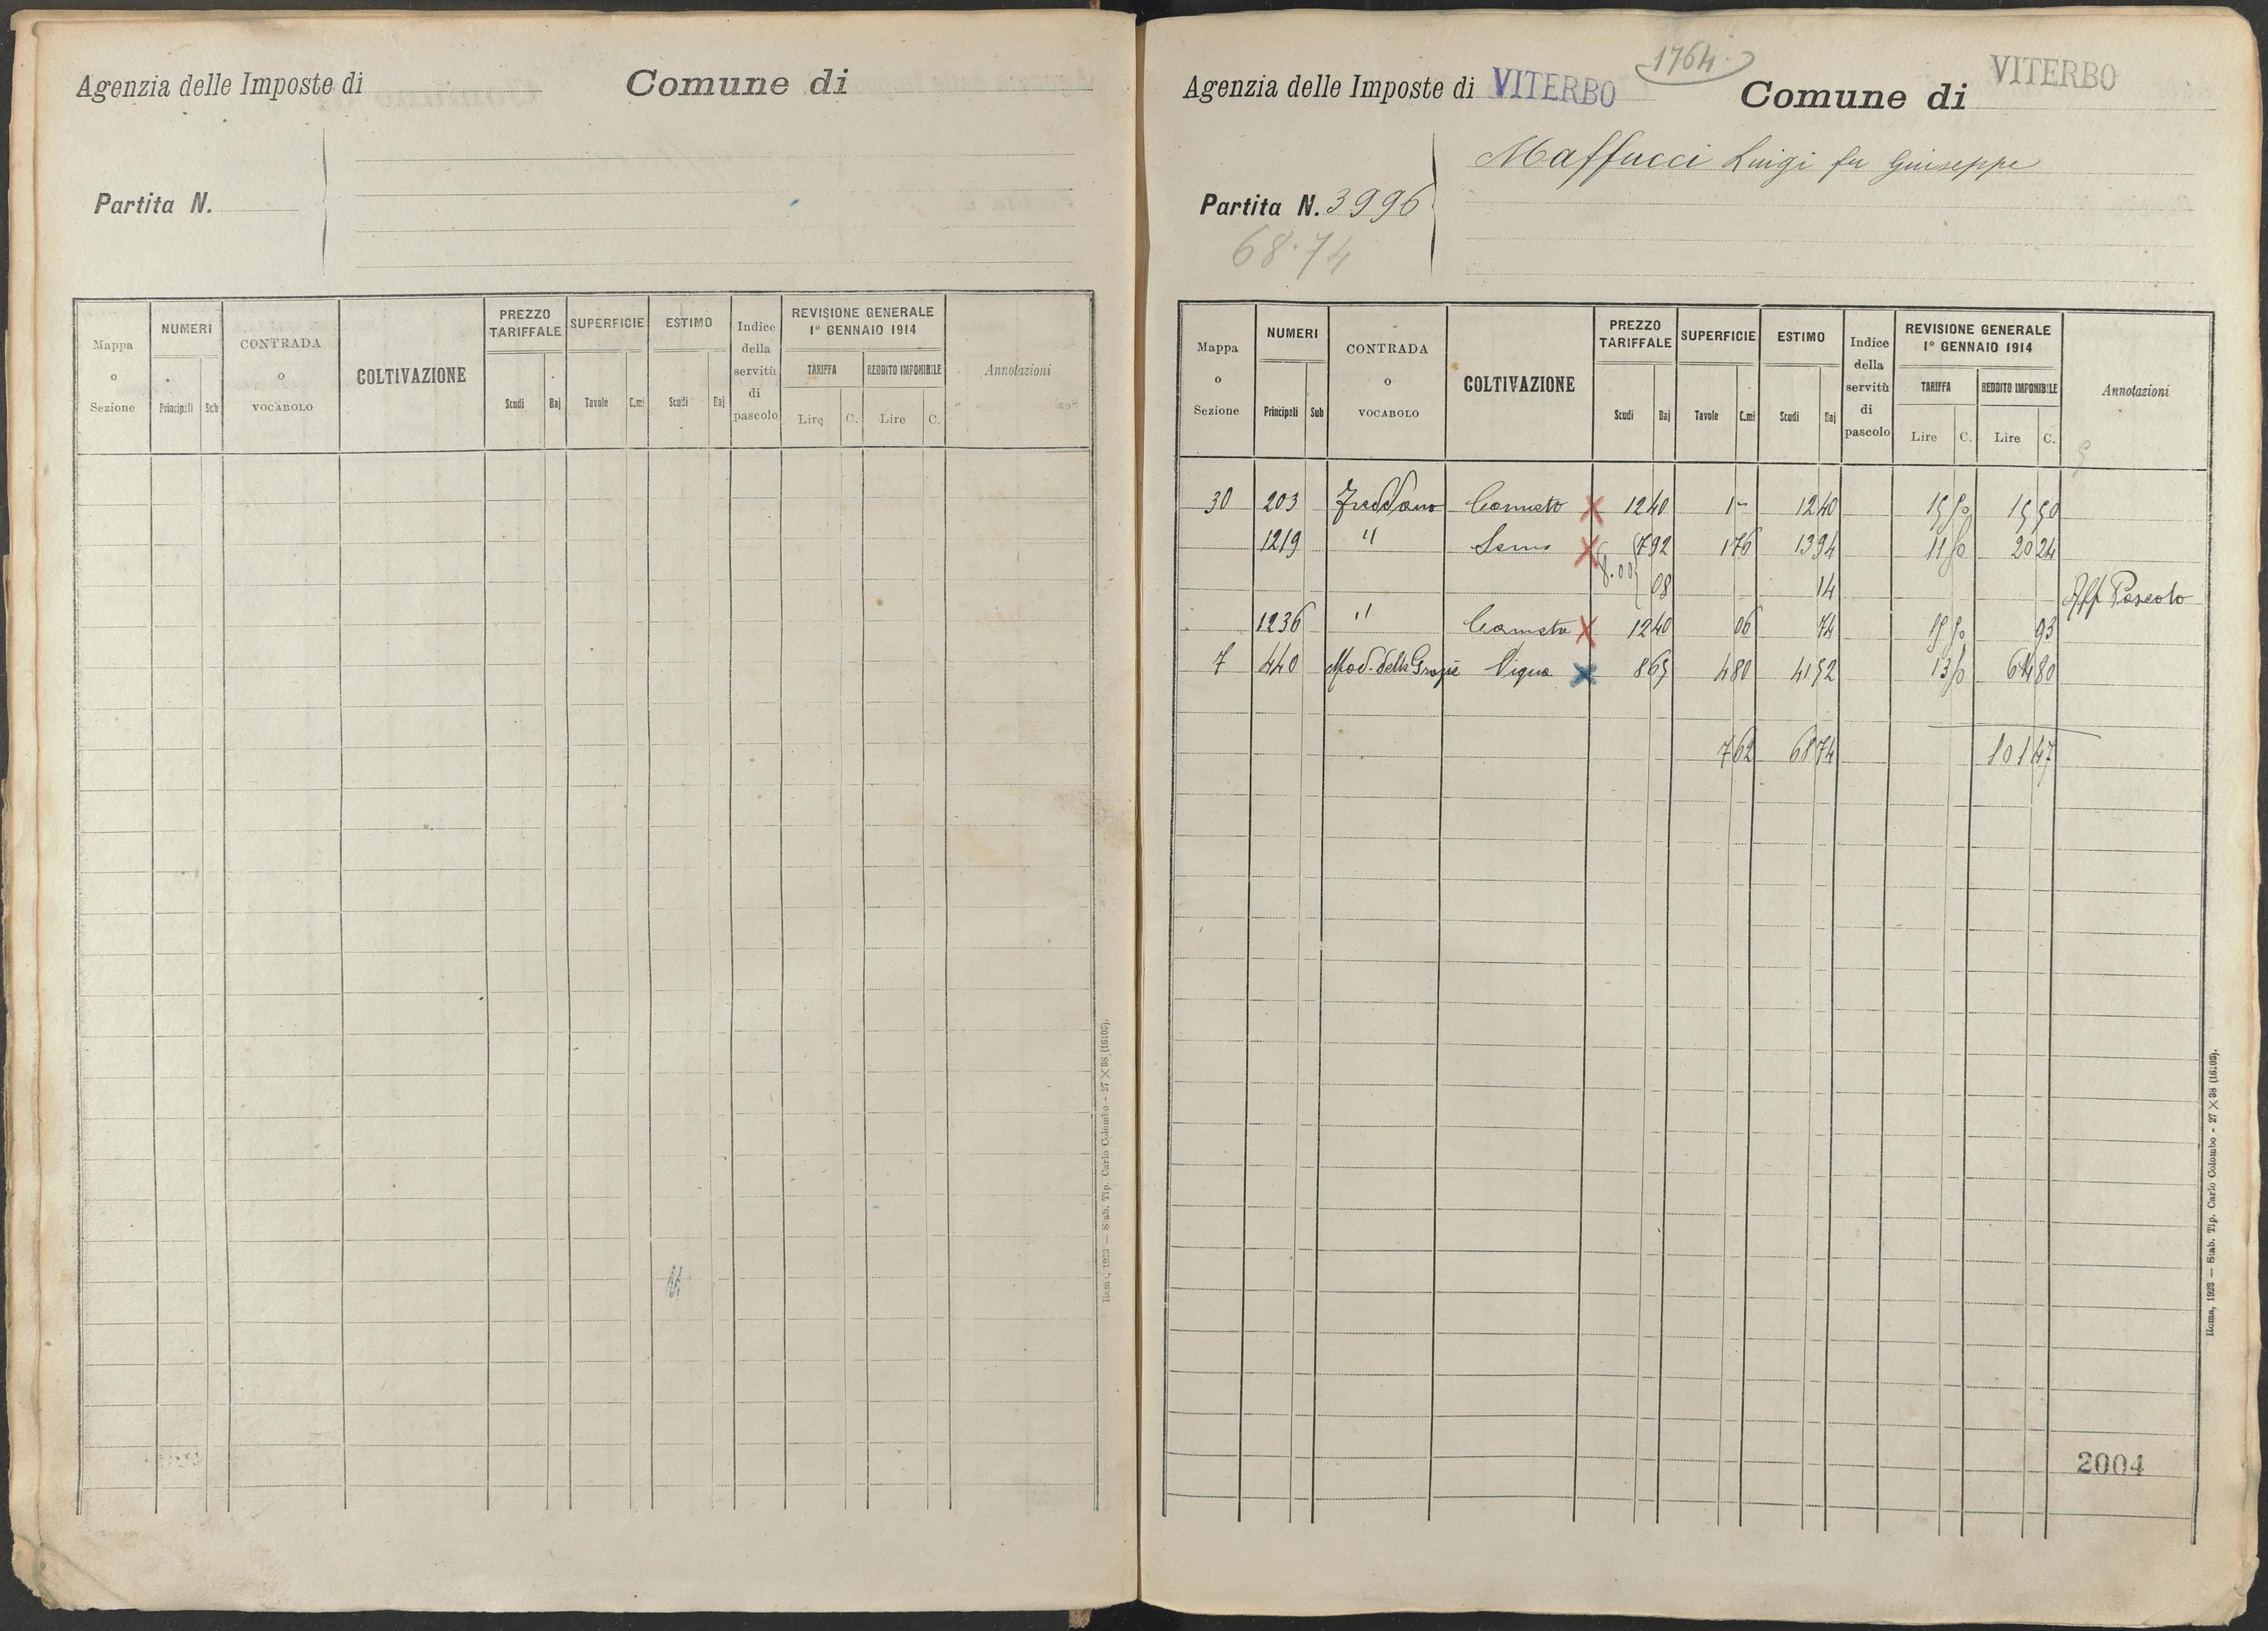 Agenzia delle Imposte di Comune di
Partita N.
Mappa o Sezione NUMERI Principali Sub CONTRADA o VOCABOLO COLTIVAZIONE PREZZO TARIFFALE Scudi Baj SUPERFICIE Tavole C.mi ESTIMO Scudi Baj Indice della servitù di pascolo REVISIONE GENERALE 1° GENNAIO 1914 TARIFFA Lire C. REDDITO IMPONIBILE Lire C. Annotazioni
Roma, 1923 — Stab. Tip. Carlo Colombo - 27 X 38 (16103).
1764
Agenzia delle Imposte di VITERBO Comune di VITERBO
Maffucci Luigi fu Giuseppe
Partita N. 3996
68.74
Mappa o Sezione NUMERI Principali Sub CONTRADA o VOCABOLO COLTIVAZIONE PREZZO TARIFFALE Scudi Baj SUPERFICIE Tavole C.mi ESTIMO Scudi Baj Indice della servitù di pascolo REVISIONE GENERALE 1° GENNAIO 1914 TARIFFA Lire C. REDDITO IMPONIBILE Lire C. Annotazioni
30 203 Freddano X 12 40 1 - 12 40 15 50 15 50
1219 " X 7 92 1 76 13 94 11 50 20 24
8.00 08 14 Aff Pascolo
1236 " X 12 40 06 74 15 50 93
7 440 Mad. delle Grazie Vigna X 8 65 4 80 41 52 13 50 64 80
7 62 68 74 101 47
2004
Roma, 1923 — Stab. Tip. Carlo Colombo - 27 X 38 (16103).